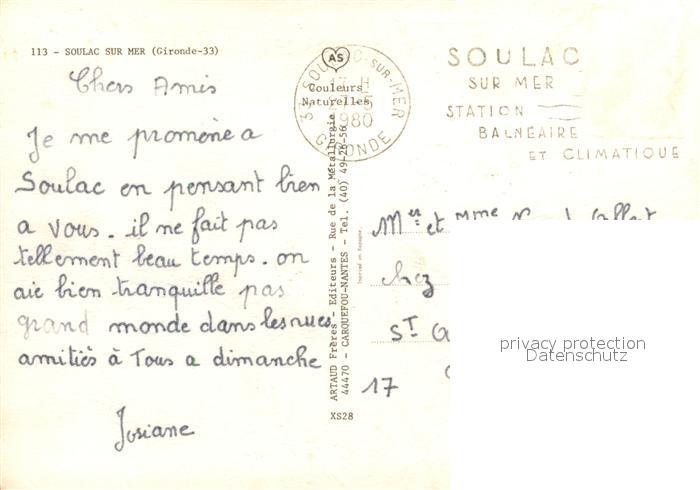 113 - SOULAC SUR MER (Gironde-33)
Chers Amis
Je me promène a
Soulac en pensant bien
a vous. il ne fait pas
tellement beau temps. on
aie bien tranquille pas
grand monde dans les rues
amitiés à Tous a dimanche
Josiane
AS
Couleurs
Naturelles
SOULAC-SUR-MER
1980
GIRONDE
SOULAC
SUR MER
STATION
BALNÉAIRE
ET CLIMATIQUE
ARTAUD Frères - Editeurs - Rue de la Métallurgie
44470 - CARQUEFOU-NANTES - Tel. (40) 49-26-56
XS28
Mer et Mme
chez
ST
17
privacy protection
Datenschutz